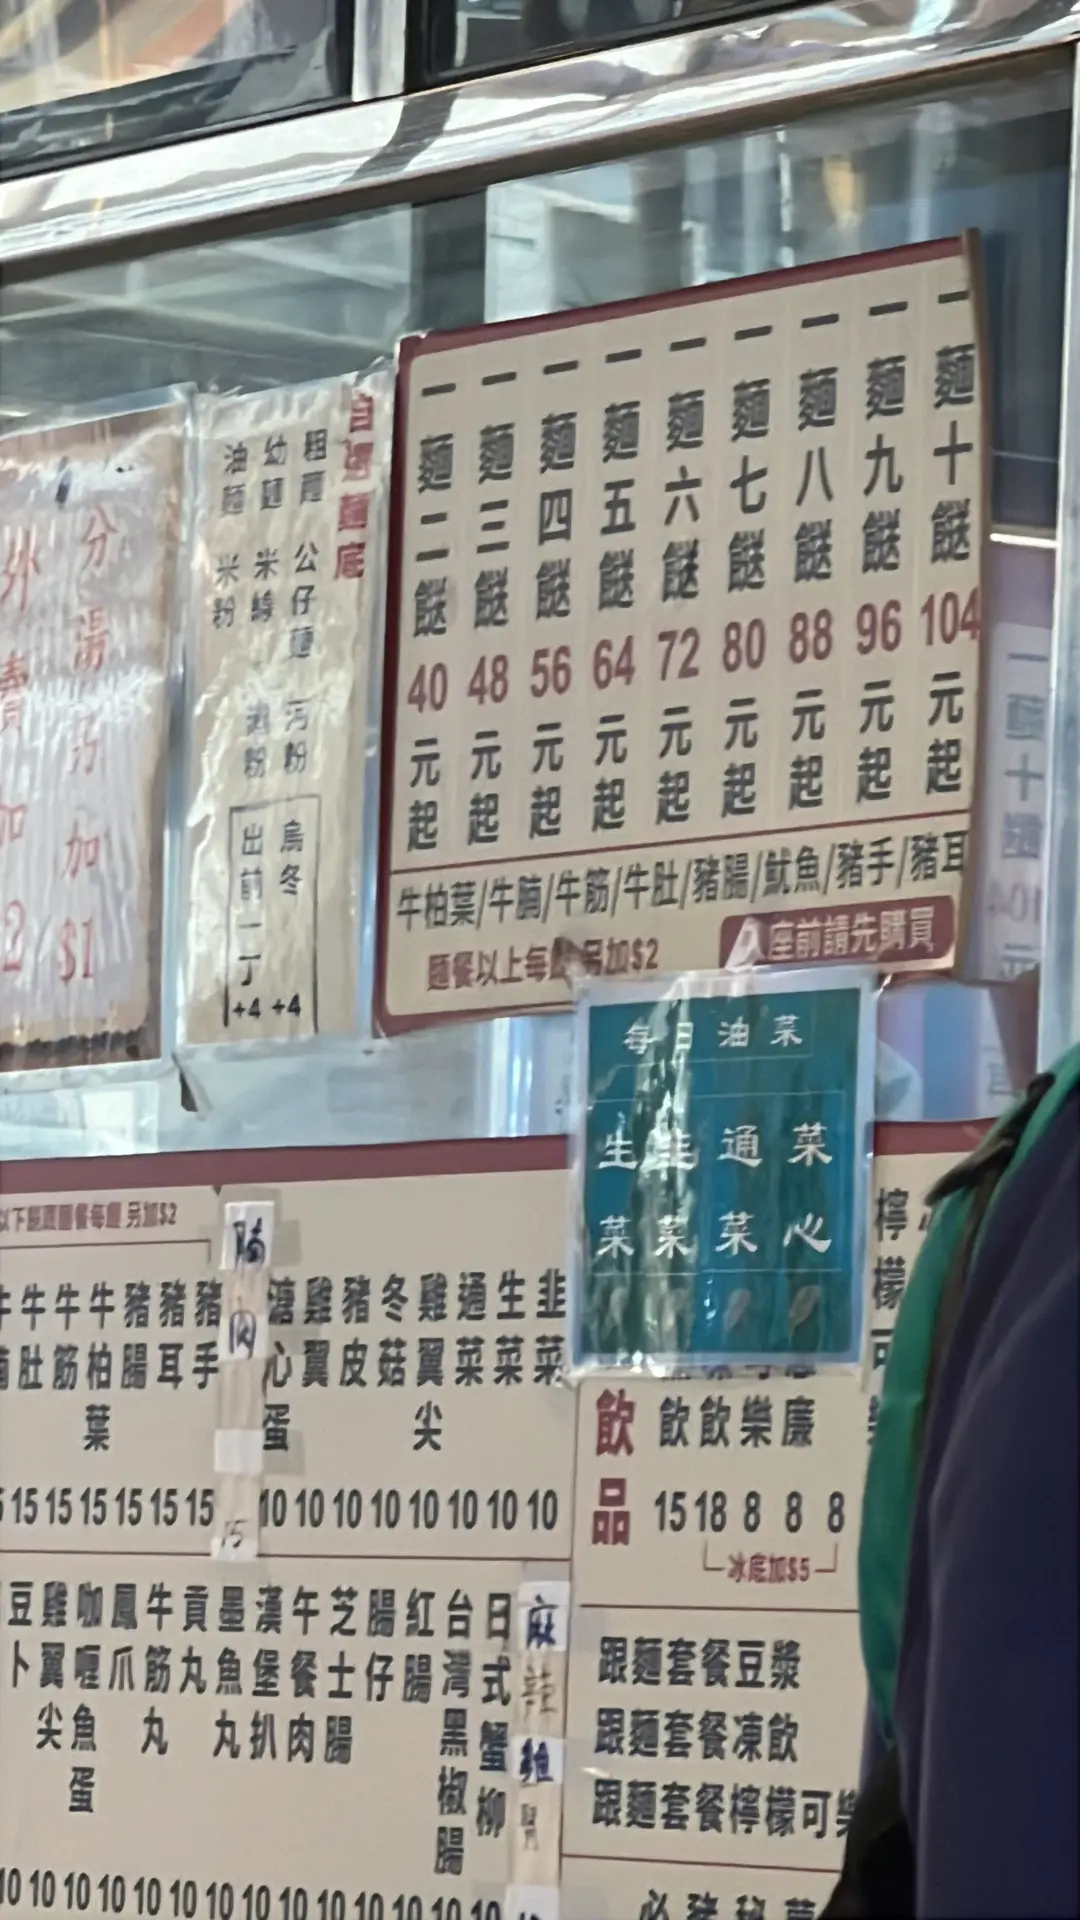 一麵十餸104元起
一麵九餸96元起
一麵八餸88元起
一麵七餸80元起
一麵六餸72元起
一麵五餸64元起
一麵四餸56元起
一麵三餸48元起
一麵二餸40元起
牛柏葉/牛腩/牛筋/牛肚/豬腸/魷魚/豬手/豬耳
麵餐以上每餸 另加$2
座前請先購買
自選麵底
粗麵 公仔麵 河粉 烏冬 +4
幼麵 米線 出前一丁 +4
油麵 米粉
分湯另加$1
外賣加
每日油菜
菜心
通菜
生菜
另加$2
韭菜 10
生菜 10
通菜 10
雞翼尖 10
冬菇 10
豬皮 10
雞翼 10
溏心蛋 10
腩肉 15
豬手 15
豬耳 15
豬腸 15
牛柏葉 15
牛筋 15
牛肚 15
飲品
15 18 8 8 8
冰底加$5
麻辣雞
日式蟹柳 10
台灣黑椒腸 10
紅腸 10
腸仔 10
芝士腸 10
午餐肉 10
漢堡扒 10
墨魚丸 10
貢丸 10
牛筋丸 10
鳳爪 10
咖喱魚蛋 10
雞翼尖 10
豆卜 10
跟麵套餐豆漿
跟麵套餐凍飲
跟麵套餐檸檬可樂